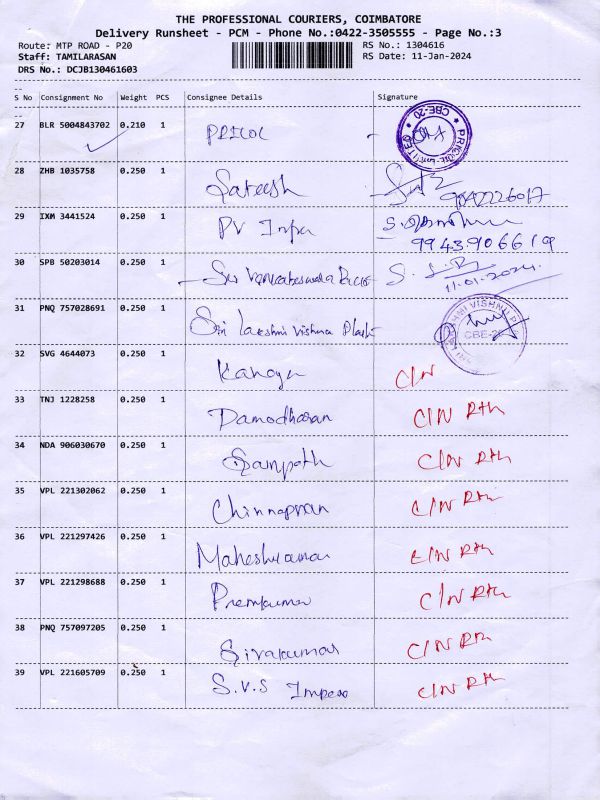 THE PROFESSIONAL COURIERS, COIMBATORE
Delivery Runsheet - PCM - Phone No.:0422-3505555 - Page No.:3
Route: MTP ROAD - P20 RS No.: 1304616
Staff: TAMILARASAN RS Date: 11-Jan-2024
DRS No.: DCJB130461603
S No Consignment No Weight PCS Consignee Details Signature
27 BLR 5004843702 0.210 1 PRICOL CBE-20
28 ZHB 1035758 0.250 1 Sateesh 9842226017
29 IXM 3441524 0.250 1 PV Infra
9943906619
30 SPB 50203014 0.250 1 Sri Venkateswara
11.01.2024.
31 PNQ 757028691 0.250 1 Sri Lakshmi Vishnu Plast
32 SVG 4644073 0.250 1 Kanaga C/N
33 TNJ 1228258 0.250 1 Damodharan C/N Rth
34 NDA 906030670 0.250 1 Sampath C/N Rth
35 VPL 221302062 0.250 1 C/N Rth
36 VPL 221297426 0.250 1 C/N Rth
37 VPL 221298688 0.250 1 Premkumar C/N Rth
38 PNQ 757097205 0.250 1 Sivakumar C/N Rth
39 VPL 221605709 0.250 1 S.V.S Impex C/N Rth